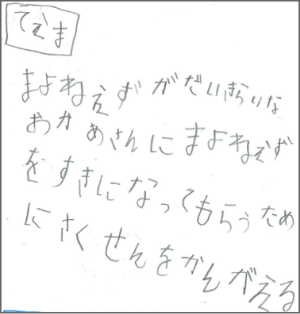 てえま
まよねえずがだいきらいな
おかめさんにまよねえず
をすきになってもらうため
にさくせんをかんがえる